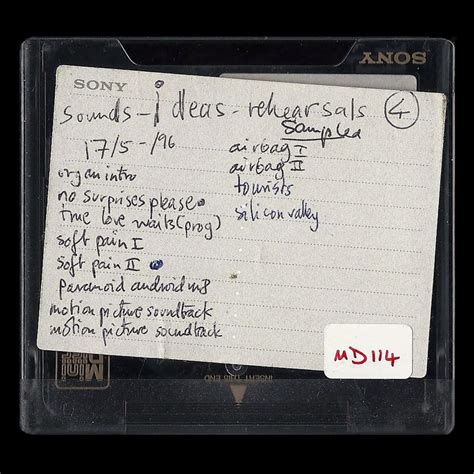 SONY
SONY
sounds - ideas - rehearsals 4
sampled
17/5-/96
organ intro
no surprises please
true love waits (prog)
soft pain I
soft pain II
paranoid android m8
motion picture soundtrack
motion picture soundtrack
airbag I
airbag II
tourists
silicon valley
MD114
Mini
INSERT THIS END